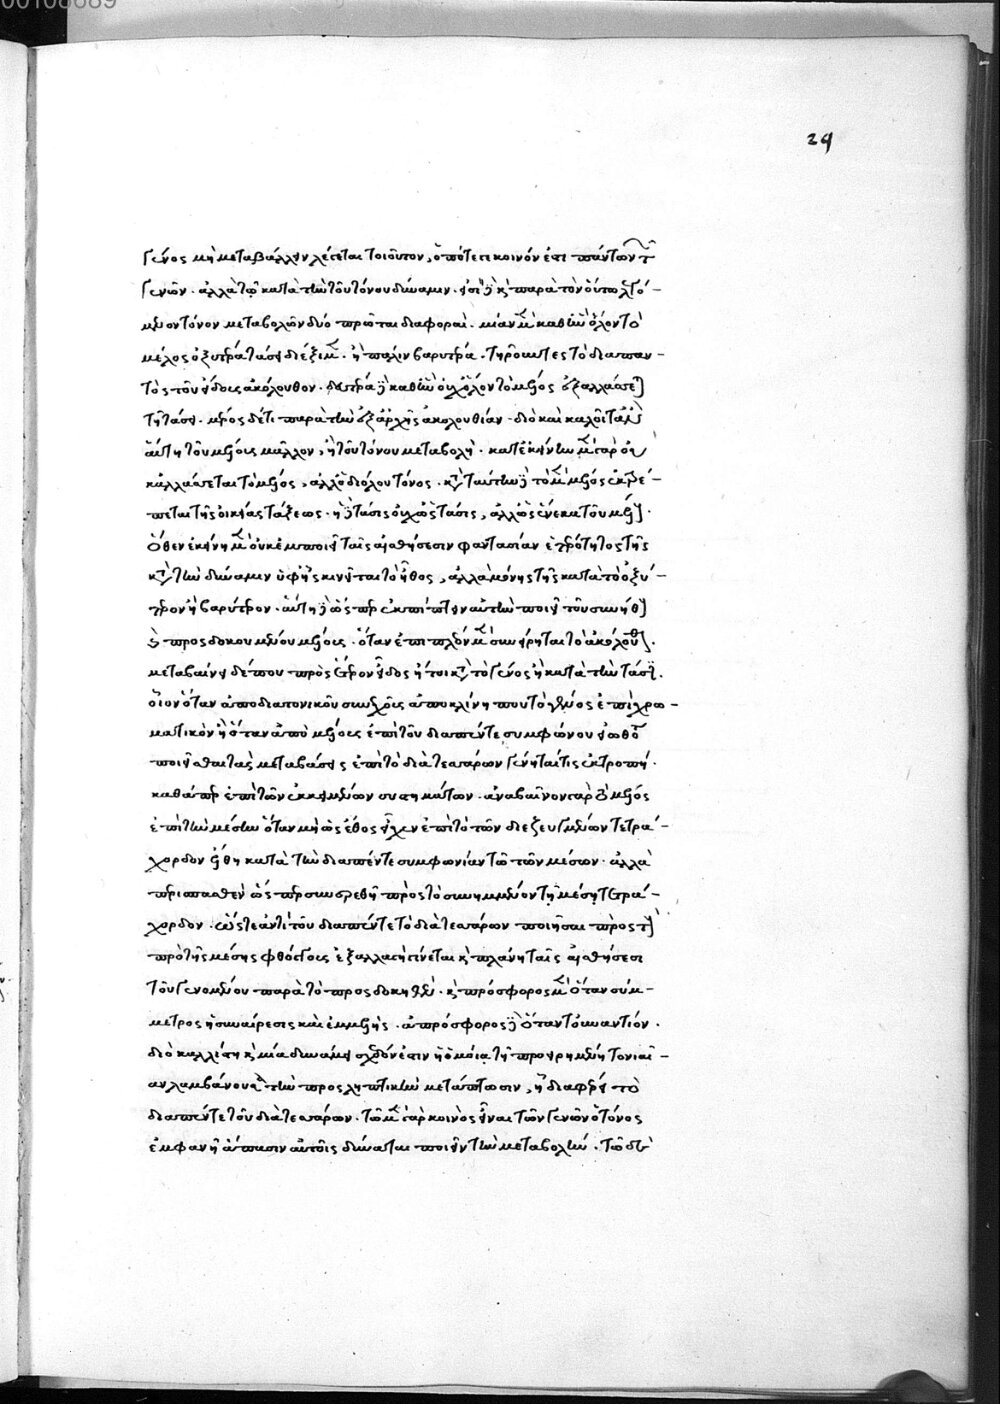 00108689
29
γένος μὴ μεταβάλλειν λέγεται τοιοῦτον, ὁπότε τι κοινόν ἐστι πάντων τῶν
γενῶν. ἀλλὰ τῷ κατὰ τὴν τοῦ τόνου δύναμιν. εἰσὶ δὲ καὶ παρὰ τὸν οὕτω λεγό-
μενον τόνον μεταβολῶν δύο πρῶται διαφοραὶ. μία μὲν καθ' ἣν ὅλον τὸ
μέλος ὀξυτέρᾳ τάσει διέξιμεν. ἢ πάλιν βαρυτέρᾳ. τηροῦντες τὸ διαπαν-
τὸς τοῦ εἴδους ἀκόλουθον. δευτέρα δὲ καθ' ἣν οὐχ ὅλον τὸ μέλος ἐξαλλάσσεται
τῇ τάσει. μέρος δέ τι παρὰ τὴν ἐξ ἀρχῆς ἀκολουθίαν. διὸ καὶ καλοῖτ' ἂν
αὕτη τοῦ μέλους μᾶλλον, ἢ τοῦ τόνου μεταβολὴ. κατ' ἐκείνην μὲν γὰρ οὐ
καλλάσσεται τὸ μέλος, ἀλλ' ὁ διόλου τόνος. κατὰ ταύτην δὲ τὸ μὲν μέλος ἐκτρέ-
πεται τῆς οἰκείας τάξεως. ἡ δὲ τάσις οὐχ ὡς τάσις, ἀλλ' ὡς ἕνεκα τοῦ μέλους.
ὅθεν ἐκείνη μὲν οὐκ ἐμποιεῖ ταῖς αἰσθήσεσιν φαντασίαν ἑτερότητος τῆς
κατὰ τὴν δύναμιν ὑφ' ἧς κινεῖται τὸ ἦθος, ἀλλὰ μόνης τῆς κατὰ τὸ ὀξύ-
τερον ἢ βαρύτερον. αὕτη δὲ ὥσπερ ἐκπίπτειν αὐτὴν ποιεῖ τοῦ συνήθους
καὶ προσδοκουμένου μέλους. ὅταν ἐπιπλέον μὲν συνείρηται τὸ ἀκόλουθον.
μεταβαίνῃ δέ που πρὸς ἕτερον εἶδος ἤτοι κατὰ τὸ γένος ἢ κατὰ τὴν τάσιν.
οἷον ὅταν ἀπὸ διατονικοῦ συνεχοῦς ἀποκλίνῃ που τὸ γένος ἐπὶ χρω-
ματικὸν ἢ ὅταν ἀπὸ μέλους ἐπὶ τοῦ διαπέντε συμφώνου εἰωθότος
ποιεῖσθαι τὰς μεταβάσεις ἐπὶ τὸ διὰ τεσσάρων γένηταί τις ἐκτροπή.
καθάπερ ἐπὶ τῶν ἐκκειμένων συστημάτων. ἀναβαῖνον γὰρ τὸ μέλος
ἐπὶ τὴν μέσην ὅταν μὴ ὡς ἔθος εἶχεν ἐπὶ τὸ τῶν διεζευγμένων τετρά-
χορδον ἔλθῃ κατὰ τὴν διαπέντε συμφωνίαν τῷ τῶν μέσων. ἀλλὰ
περισπασθὲν ὥσπερ συνερεθῇ πρὸς τὸ συνημμένον τῇ μέσῃ τετρά-
χορδον. ὥστε ἀντὶ τοῦ διαπέντε τὸ διὰ τεσσάρων ποιῆσαι πρὸς τοὺς
πρὸ τῆς μέσης φθόγγους ἐξαλλαγὴ γίνεται καὶ πλάνη ταῖς αἰσθήσεσι
τοῦ γενομένου παρὰ τὸ προσδοκηθὲν. καὶ πρόσφορος μὲν ὅταν σύμ-
μετρος ἡ συναίρεσις καὶ ἐμμελὴς. ἀπρόσφορος δὲ ὅταν τοὐναντίον.
διὸ καλλίστη καὶ μία δυνάμει σχεδόν ἐστιν ἡ ὁμοία τῇ προειρημένῃ τονιαῖ-
αν λαμβάνουσα τὴν προσληπτικὴν μετάπτωσιν, ᾗ διαφέρει τὸ
διαπέντε τοῦ διὰ τεσσάρων. τῷ μὲν γὰρ κοινὸς εἶναι τῶν γενῶν ὁ τόνος
ἐμφανῆ ἅπασιν αὐτοῖς δύναται ποιεῖν τὴν μεταβολὴν. τῷ δὲ